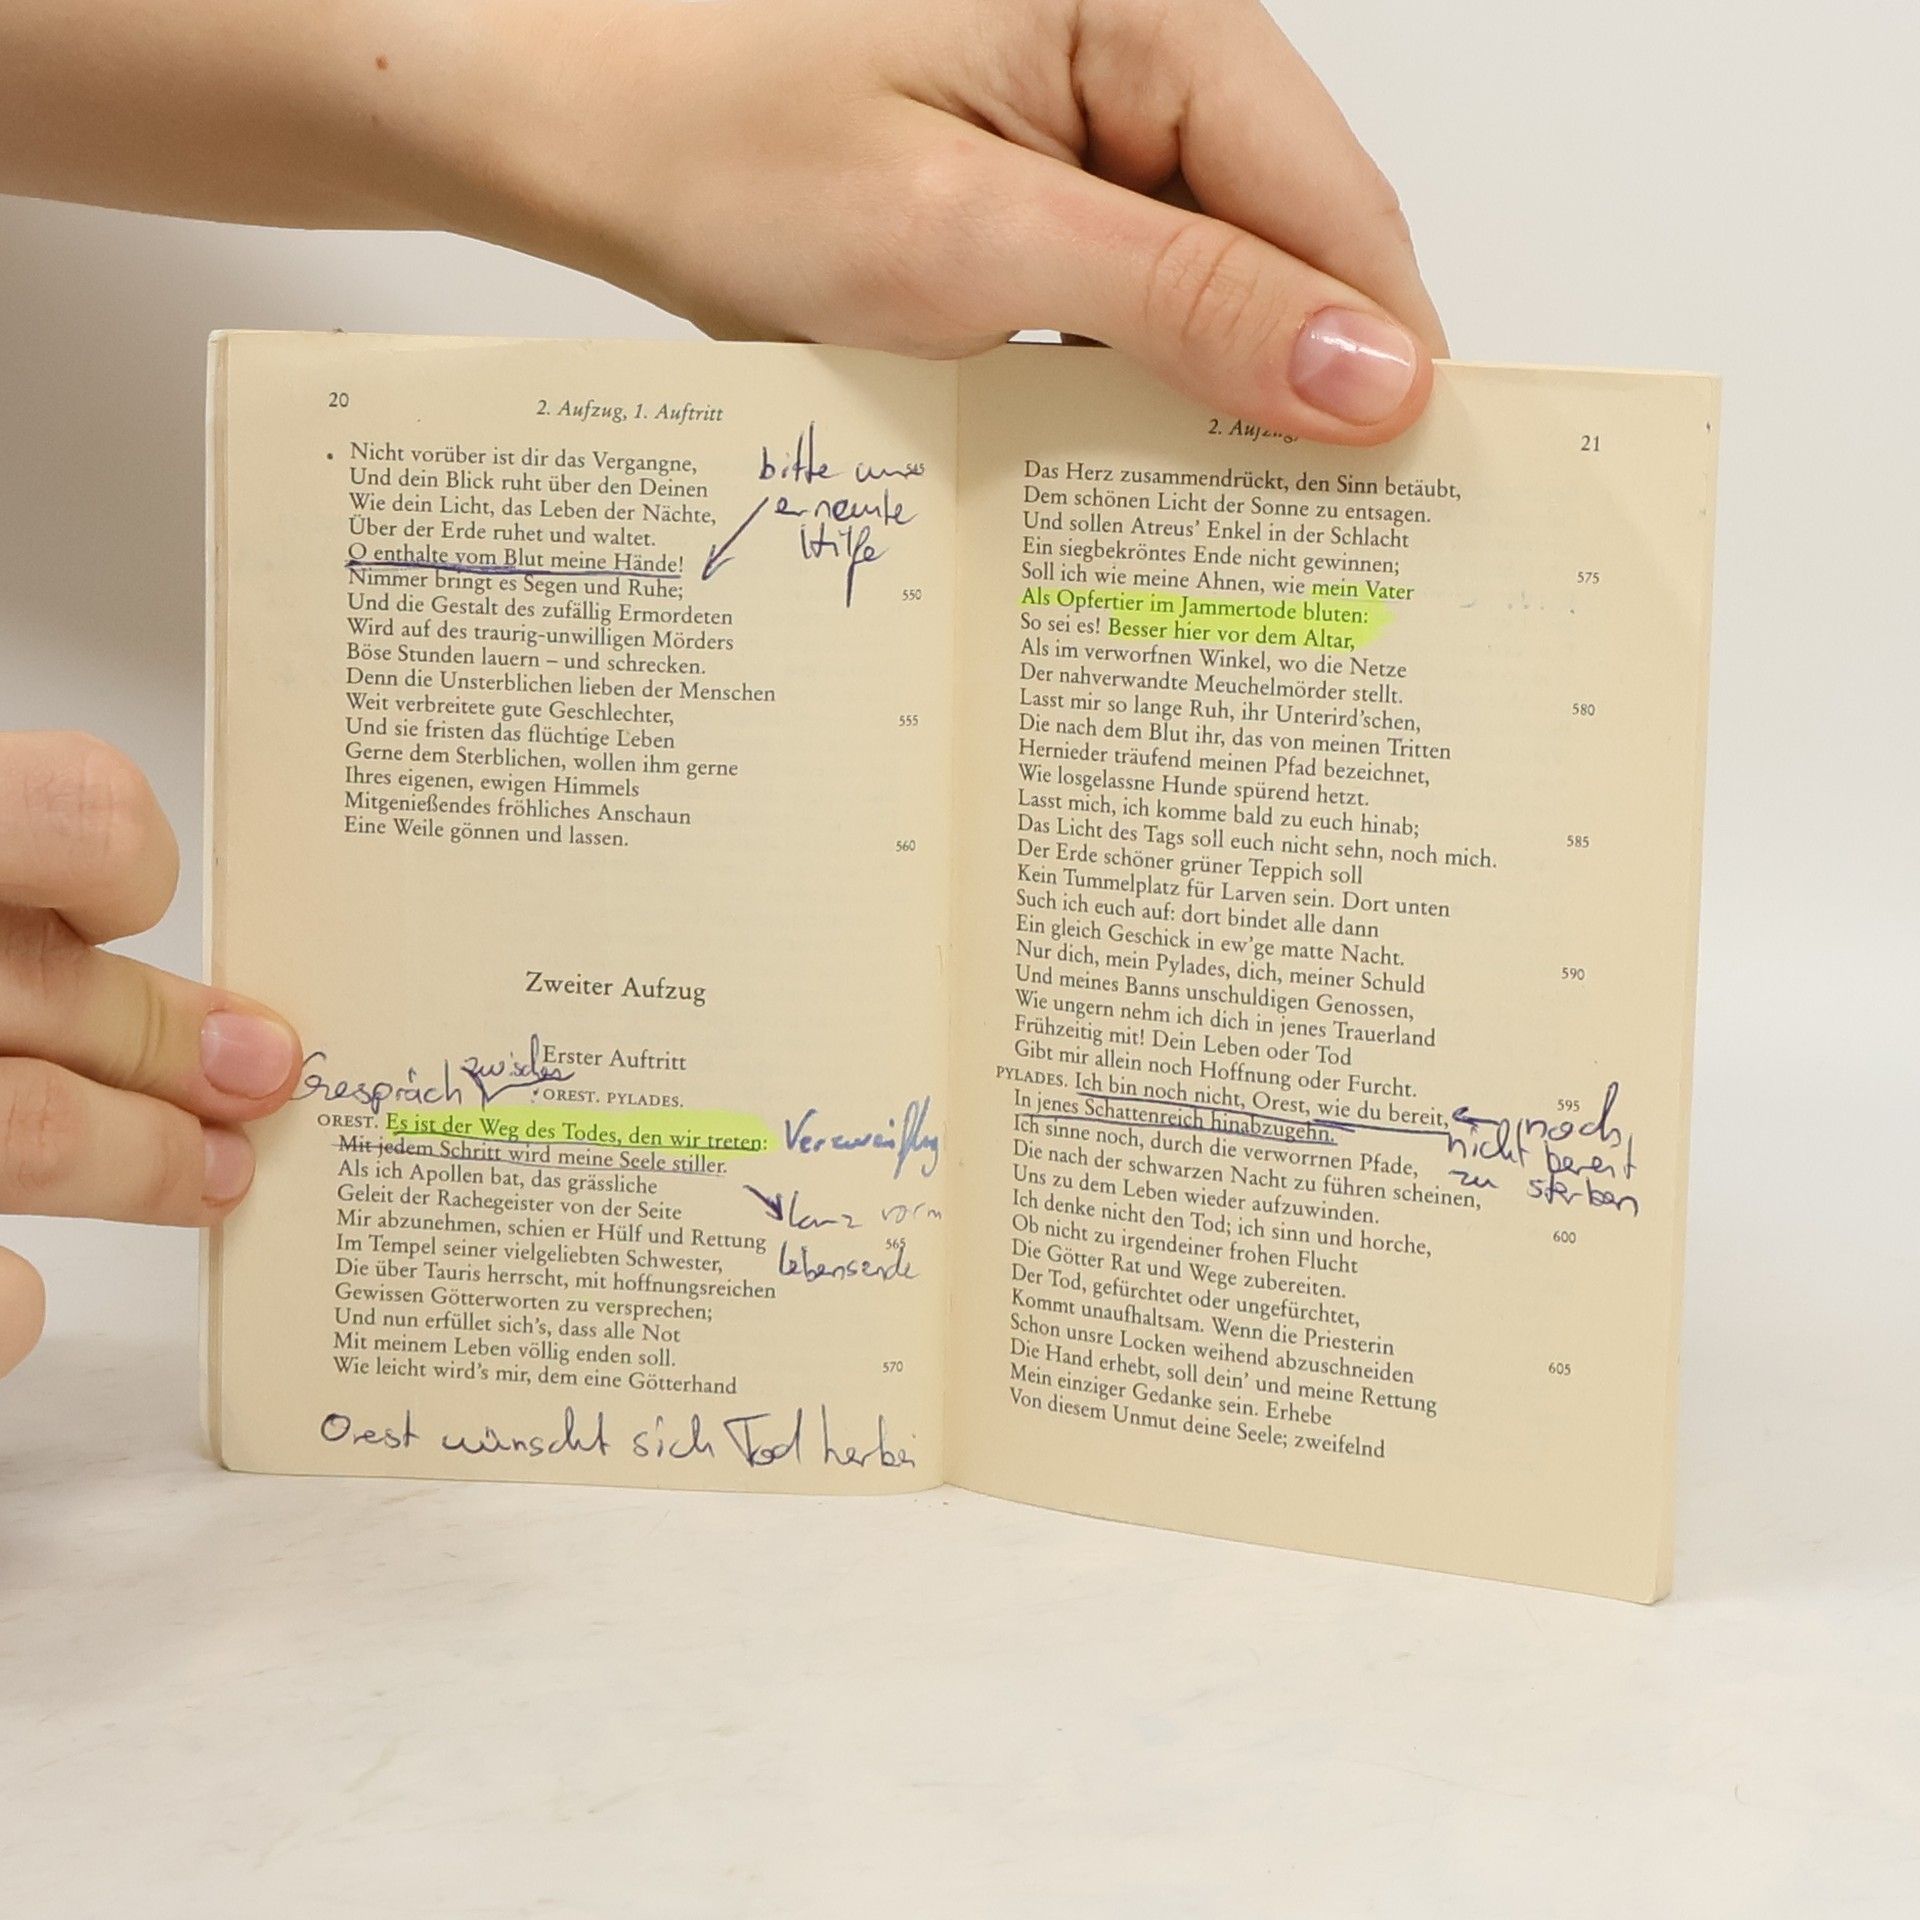 20
2. Aufzug, 1. Auftritt
Nicht vorüber ist dir das Vergangne,
Und dein Blick ruht über den Deinen
545
Wie dein Licht, das Leben der Nächte,
Über der Erde ruhet und waltet.
O enthalte vom Blut meine Hände!
Nimmer bringt es Segen und Ruhe;
Und die Gestalt des zufällig Ermordeten
550
Wird auf des traurig-unwilligen Mörders
Böse Stunden lauern – und schrecken.
Denn die Unsterblichen lieben der Menschen
Weit verbreitete gute Geschlechter,
Und sie fristen das flüchtige Leben
555
Gerne dem Sterblichen, wollen ihm gerne
Ihres eigenen, ewigen Himmels
Mitgenießendes fröhliches Anschaun
Eine Weile gönnen und lassen.
560
bitte um
erneute
Hilfe
Zweiter Aufzug
Erster Auftritt
Gespräch zwischen
OREST. PYLADES.
OREST. Es ist der Weg des Todes, den wir treten:
Mit jedem Schritt wird meine Seele stiller.
Als ich Apollen bat, das grässliche
Geleit der Rachegeister von der Seite
Mir abzunehmen, schien er Hülf und Rettung
565
Im Tempel seiner vielgeliebten Schwester,
Die über Tauris herrscht, mit hoffnungsreichen
Gewissen Götterworten zu versprechen;
Und nun erfüllet sich's, dass alle Not
Mit meinem Leben völlig enden soll.
570
Wie leicht wird's mir, dem eine Götterhand
Verzweiflung
vorm
Lebensende
Orest wünscht sich Tod herbei
2. Aufzug,
21
Das Herz zusammendrückt, den Sinn betäubt,
Dem schönen Licht der Sonne zu entsagen.
Und sollen Atreus' Enkel in der Schlacht
Ein siegbekröntes Ende nicht gewinnen;
Soll ich wie meine Ahnen, wie mein Vater
575
Als Opfertier im Jammertode bluten:
So sei es! Besser hier vor dem Altar,
Als im verworfnen Winkel, wo die Netze
Der nahverwandte Meuchelmörder stellt.
Lasst mir so lange Ruh, ihr Unterird'schen,
580
Die nach dem Blut ihr, das von meinen Tritten
Hernieder träufend meinen Pfad bezeichnet,
Wie losgelassne Hunde spürend hetzt.
Lasst mich, ich komme bald zu euch hinab;
Das Licht des Tags soll euch nicht sehn, noch mich.
585
Der Erde schöner grüner Teppich soll
Kein Tummelplatz für Larven sein. Dort unten
Such ich euch auf: dort bindet alle dann
Ein gleich Geschick in ew'ge matte Nacht.
Nur dich, mein Pylades, dich, meiner Schuld
590
Und meines Banns unschuldigen Genossen,
Wie ungern nehm ich dich in jenes Trauerland
Frühzeitig mit! Dein Leben oder Tod
Gibt mir allein noch Hoffnung oder Furcht.
PYLADES. Ich bin noch nicht, Orest, wie du bereit,
595
In jenes Schattenreich hinabzugehn.
Ich sinne noch, durch die verworrnen Pfade,
Die nach der schwarzen Nacht zu führen scheinen,
Uns zu dem Leben wieder aufzuwinden.
Ich denke nicht den Tod; ich sinn und horche,
600
Ob nicht zu irgendeiner frohen Flucht
Die Götter Rat und Wege zubereiten.
Der Tod, gefürchtet oder ungefürchtet,
Kommt unaufhaltsam. Wenn die Priesterin
Schon unsre Locken weihend abzuschneiden
605
Die Hand erhebt, soll dein' und meine Rettung
Mein einziger Gedanke sein. Erhebe
Von diesem Unmut deine Seele; zweifelnd
noch
nicht bereit
zu sterben